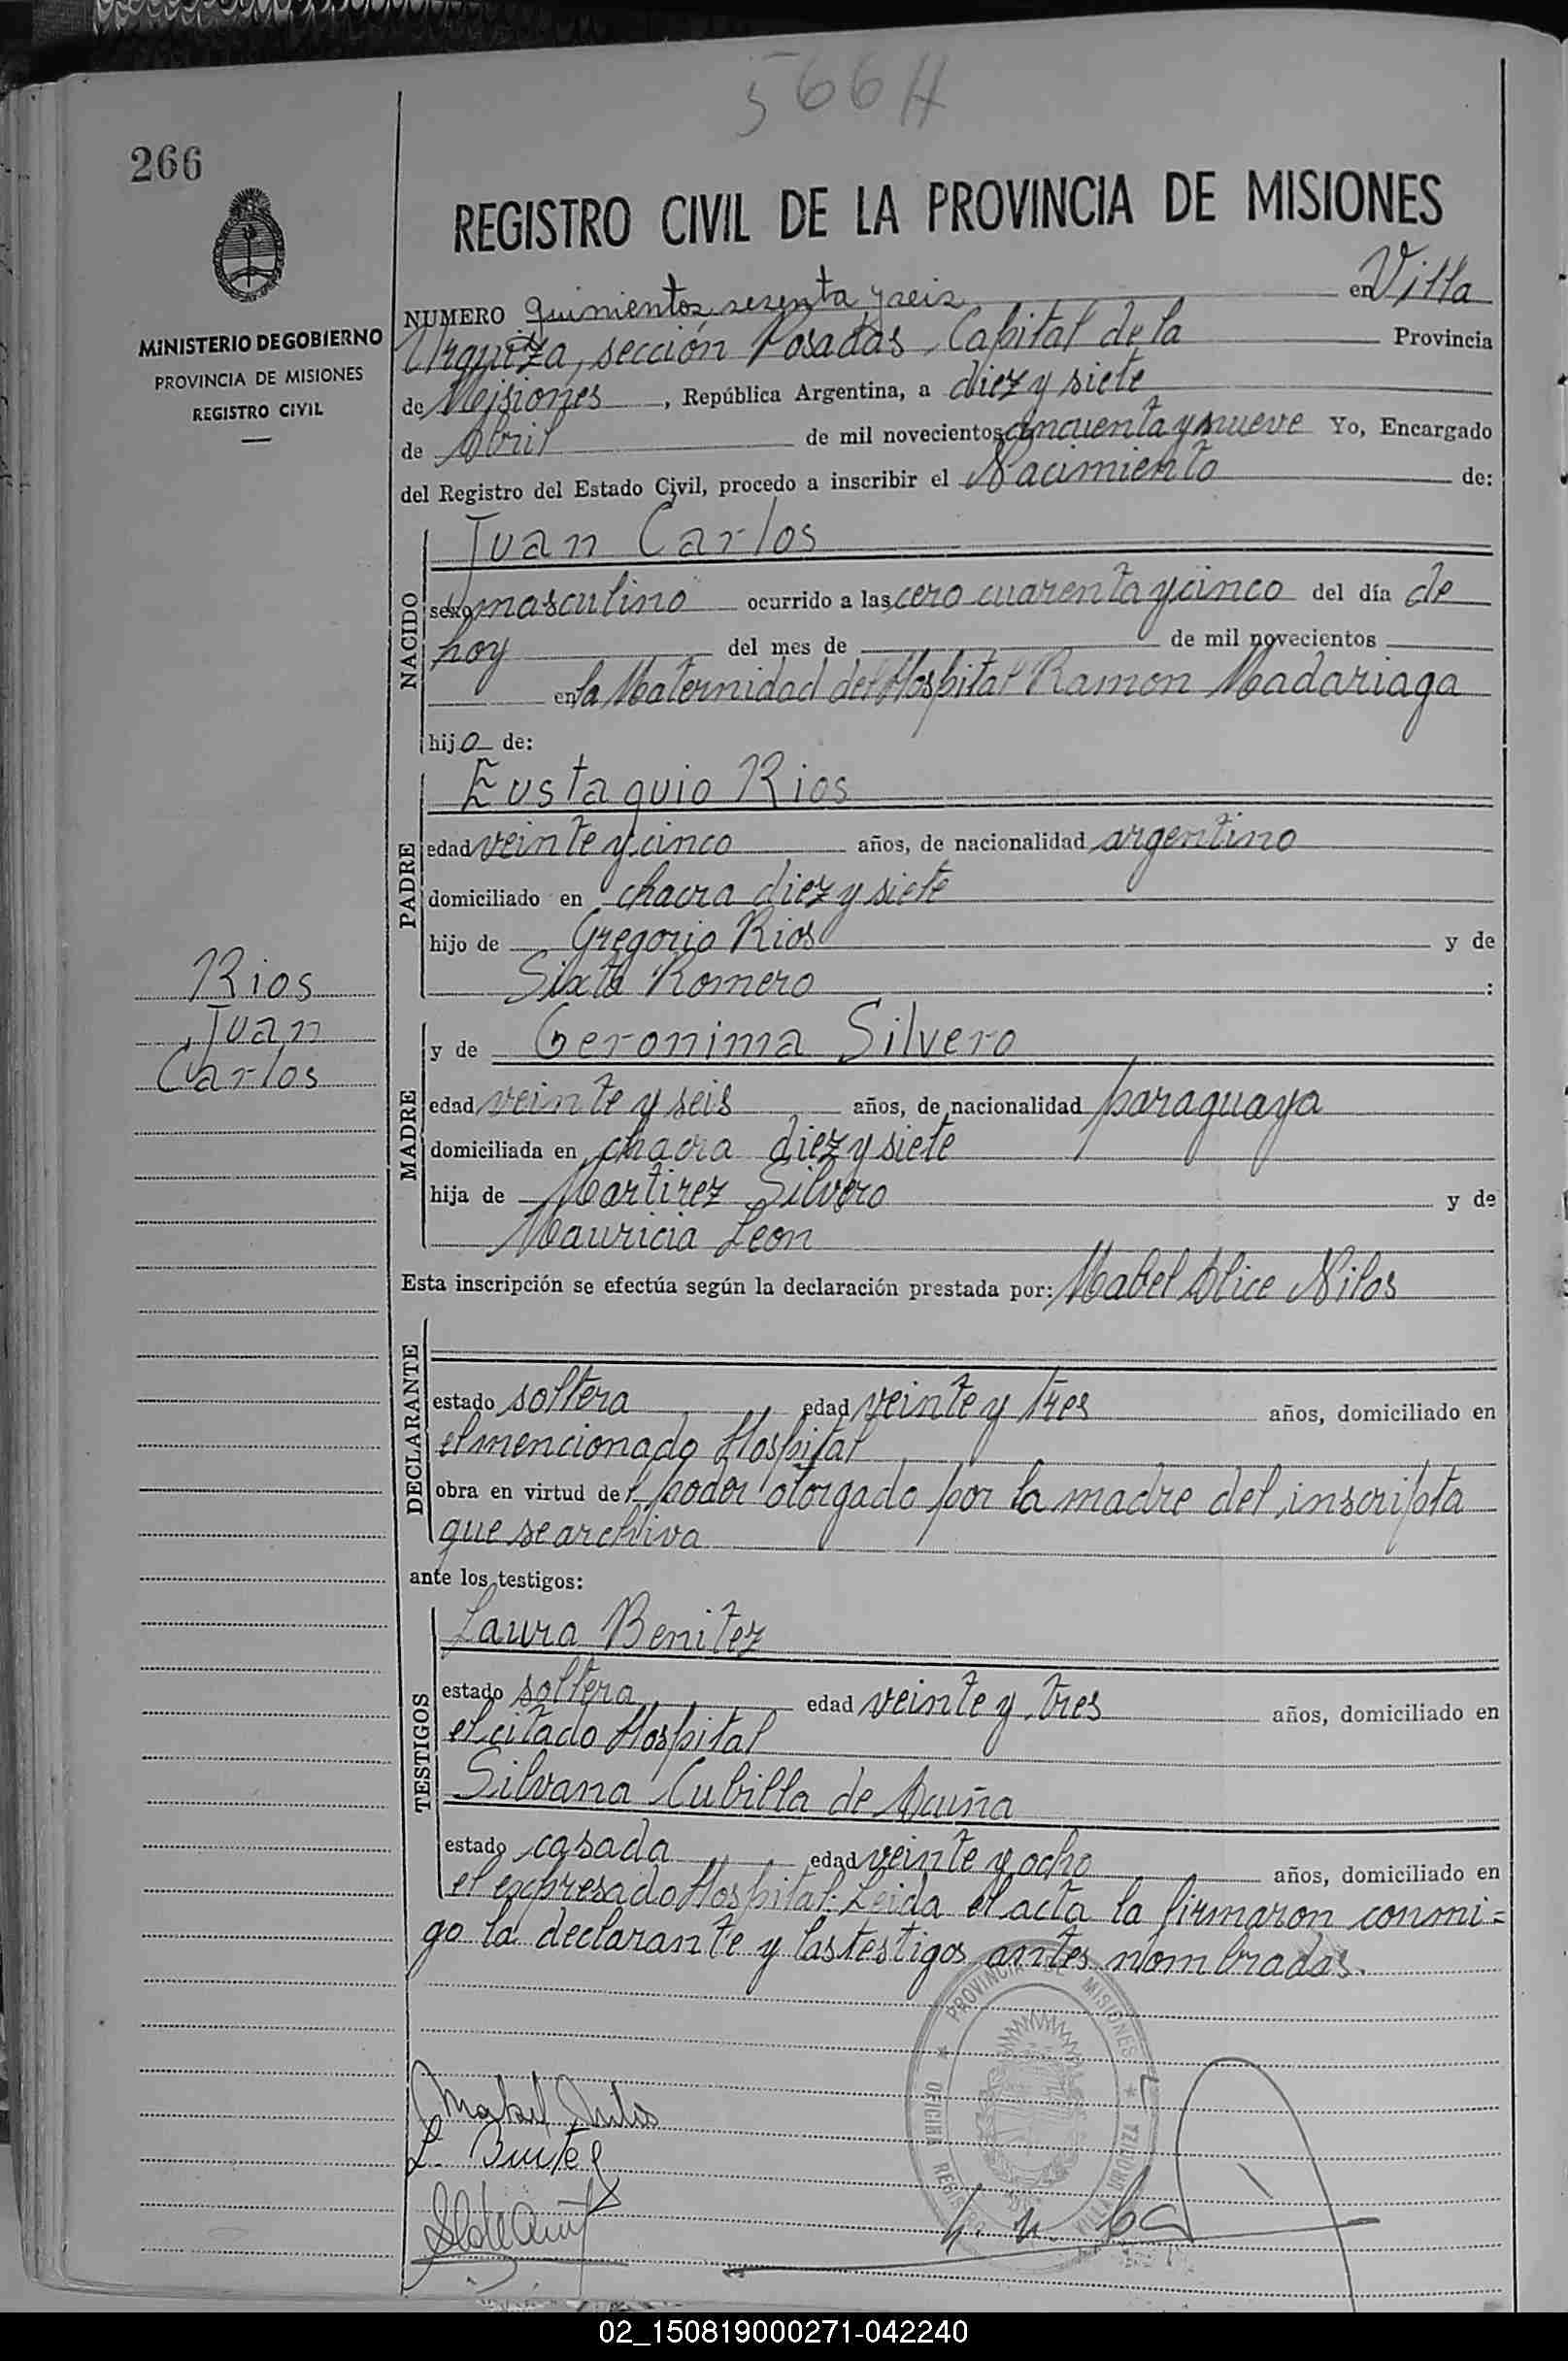 566 H
266
REGISTRO CIVIL DE LA PROVINCIA DE MISIONES
MINISTERIO DE GOBIERNO
PROVINCIA DE MISIONES
REGISTRO CIVIL
NUMERO quinientos sesenta y seis en Villa
Urquiza, sección Posadas, Capital de la Provincia
de Misiones, República Argentina, a diez y siete
de Abril de mil novecientos cincuenta y nueve Yo, Encargado
del Registro del Estado Civil, procedo a inscribir el Nacimiento de:
NACIDO
Juan Carlos
sexo masculino ocurrido a las cero cuarenta y cinco del día de
hoy del mes de de mil novecientos
en la Maternidad del Hospital Ramon Madariaga
hijo de:
PADRE
Eustaquio Rios
edad veinte y cinco años, de nacionalidad argentino
domiciliado en chacra diez y siete
hijo de Gregorio Rios y de
Sixta Romero :
Rios
Juan
Carlos
MADRE
y de Geronima Silvero
edad veinte y seis años, de nacionalidad paraguaya
domiciliada en chacra diez y siete
hija de Martirez Silvero y de
Mauricia Leon
Esta inscripción se efectúa según la declaración prestada por: Mabel Alice Nilos
DECLARANTE
estado soltera edad veinte y tres años, domiciliado en
el mencionado Hospital
obra en virtud del poder otorgado por la madre del inscripta
que se archiva
ante los testigos:
TESTIGOS
Laura Benitez
estado soltera edad veinte y tres años, domiciliado en
el citado Hospital
Silvana Cubilla de Acuña
estado casada edad veinte y ocho años, domiciliado en
el expresado Hospital. Leida el acta la firmaron conmi=
go la declarante y las testigos antes nombradas.
PROVINCIA DE MISIONES
OFICINA REGISTRO
VILLA URQUIZA
Mabel Nilos
02_150819000271-042240